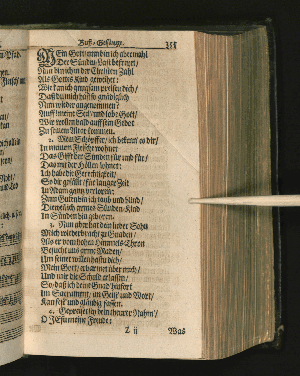 Buß-Gesänge. 355
Mein Gott nun bin ich abermahl
Der Sünden-Last befreyet/
Nun bin ich in der Christen Zahl
Als Gottes Kind geweihet:
Wie kan ich gnugsam preisen dich/
Daß du mich hast so gnädiglich
Nun wieder angenommen?
Auff meine Seel und lobe Gott/
Wir wollen bald auff sein Gebot
Zu seinem Altar kommen.
2. Mein Schöpffer/ ich bekenn es dir/
In meinem Fleische wohnet
Das Gifft der Sünden für und für/
Das mit der Höllen lohnet:
Ich habe die Gerechtigkeit/
So dir gefällt/ für langer Zeit
In Adam gantz verlohren:
Zum Guten bin ich taub und blind/
Die weil ich armes Sünden-Kind
In Sünden bin geboren.
3. Nun aber hat dein lieber Sohn
Mich wieder bracht zu Gnaden/
Als er vom hohen Himmels-Thron
Besucht uns arme Maden/
Um seinet willen hastu dich/
Mein Gott/ erbarmet über mich/
Und mir die Schuld erlassen/
So/ daß ich deine Gnad hinfort
Im Sacrament/ im Geist und Wort/
Kan fest und gläubig fassen.
4. Gepreiset sey dein theurer Nahm/
O JEsu meine Freude:
Z ij Was